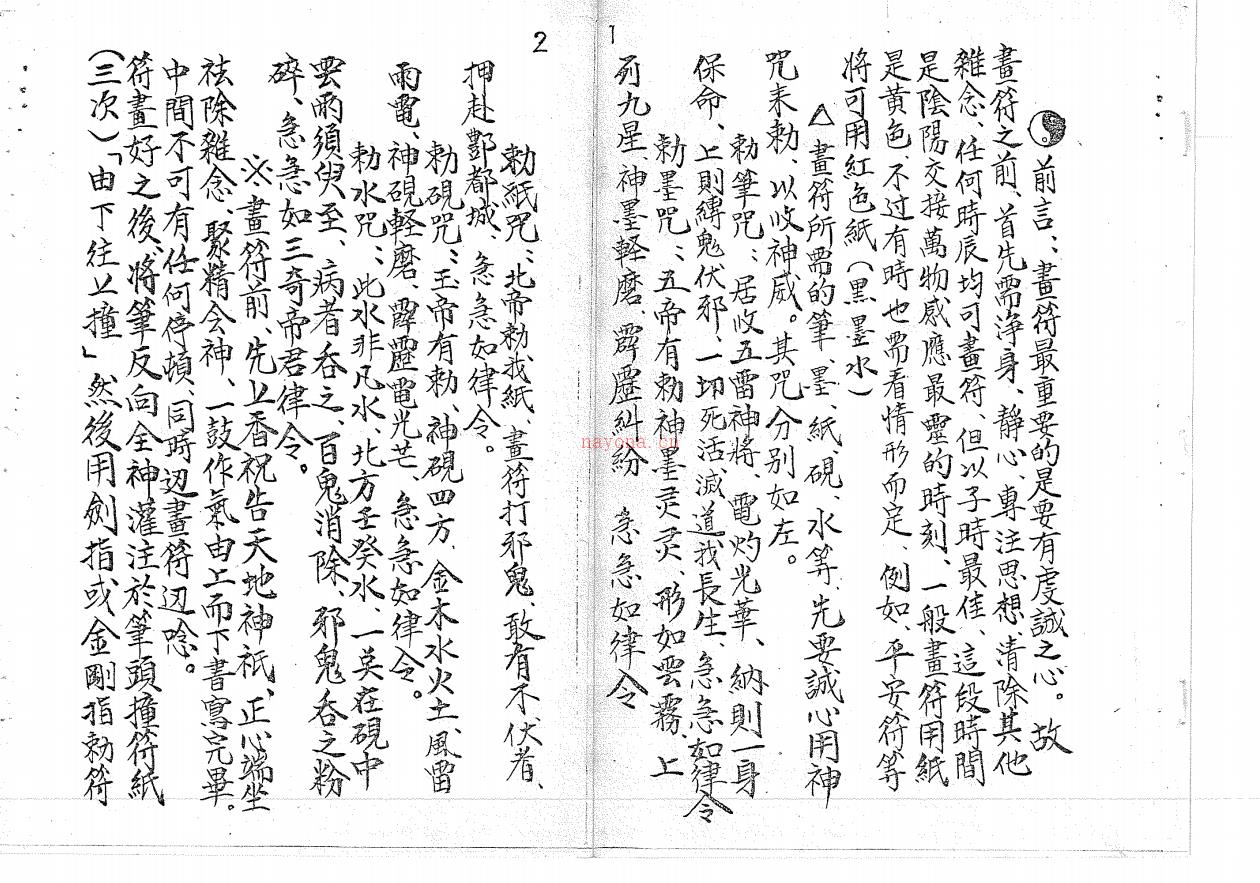 1
前言：畫符最重要的是要有虔誠之心。故
畫符之前、首先需淨身、靜心、專注思想、清除其他
雜念、任何時辰均可畫符、但以子時最佳、這段時間
是陰陽交接萬物感應最靈的時刻、一般畫符用紙
是黃色、不过有時也需看情形而定、例如、平安符等
將可用紅色紙（黑墨水）
△畫符所需的筆、墨、紙、硯、水等、先要誠心用神
咒來勅、以收神威。其咒分別如左。
勅筆咒：居收五雷神將、電灼光華、納則一身
保命、上則縛鬼伏邪、一切死活滅道我長生、急急如律令
勅墨咒：五帝有勅神墨灵灵、形如雲霧、上
列九星、神墨軽磨、霹靂糾紛 急急如律令
2
勅紙咒：北帝勅我紙、畫符打邪鬼、敢有不伏者、
押赴酆都城、急急如律令。
勅硯咒：玉帝有勅、神硯四方、金木水火土、風雷
雨電、神硯軽磨、霹靂電光芒、急急如律令。
勅水咒：此水非凡水、北方壬癸水、一奌在硯中
雲雨須臾至、病者吞之、百鬼消除、邪鬼吞之粉
碎、急急如三奇帝君律令。
※畫符前、先上香祝告天地神祇、正心端坐
祛除雜念、聚精会神、一鼓作氣由上而下書寫完畢。
中間不可有任何停頓、同時辺畫符辺唸。
符畫好之後、將筆反向全神灌注於筆頭撞符紙
（三次）「由下往上撞」然後用劍指或金剛指勅符
nayona.cn